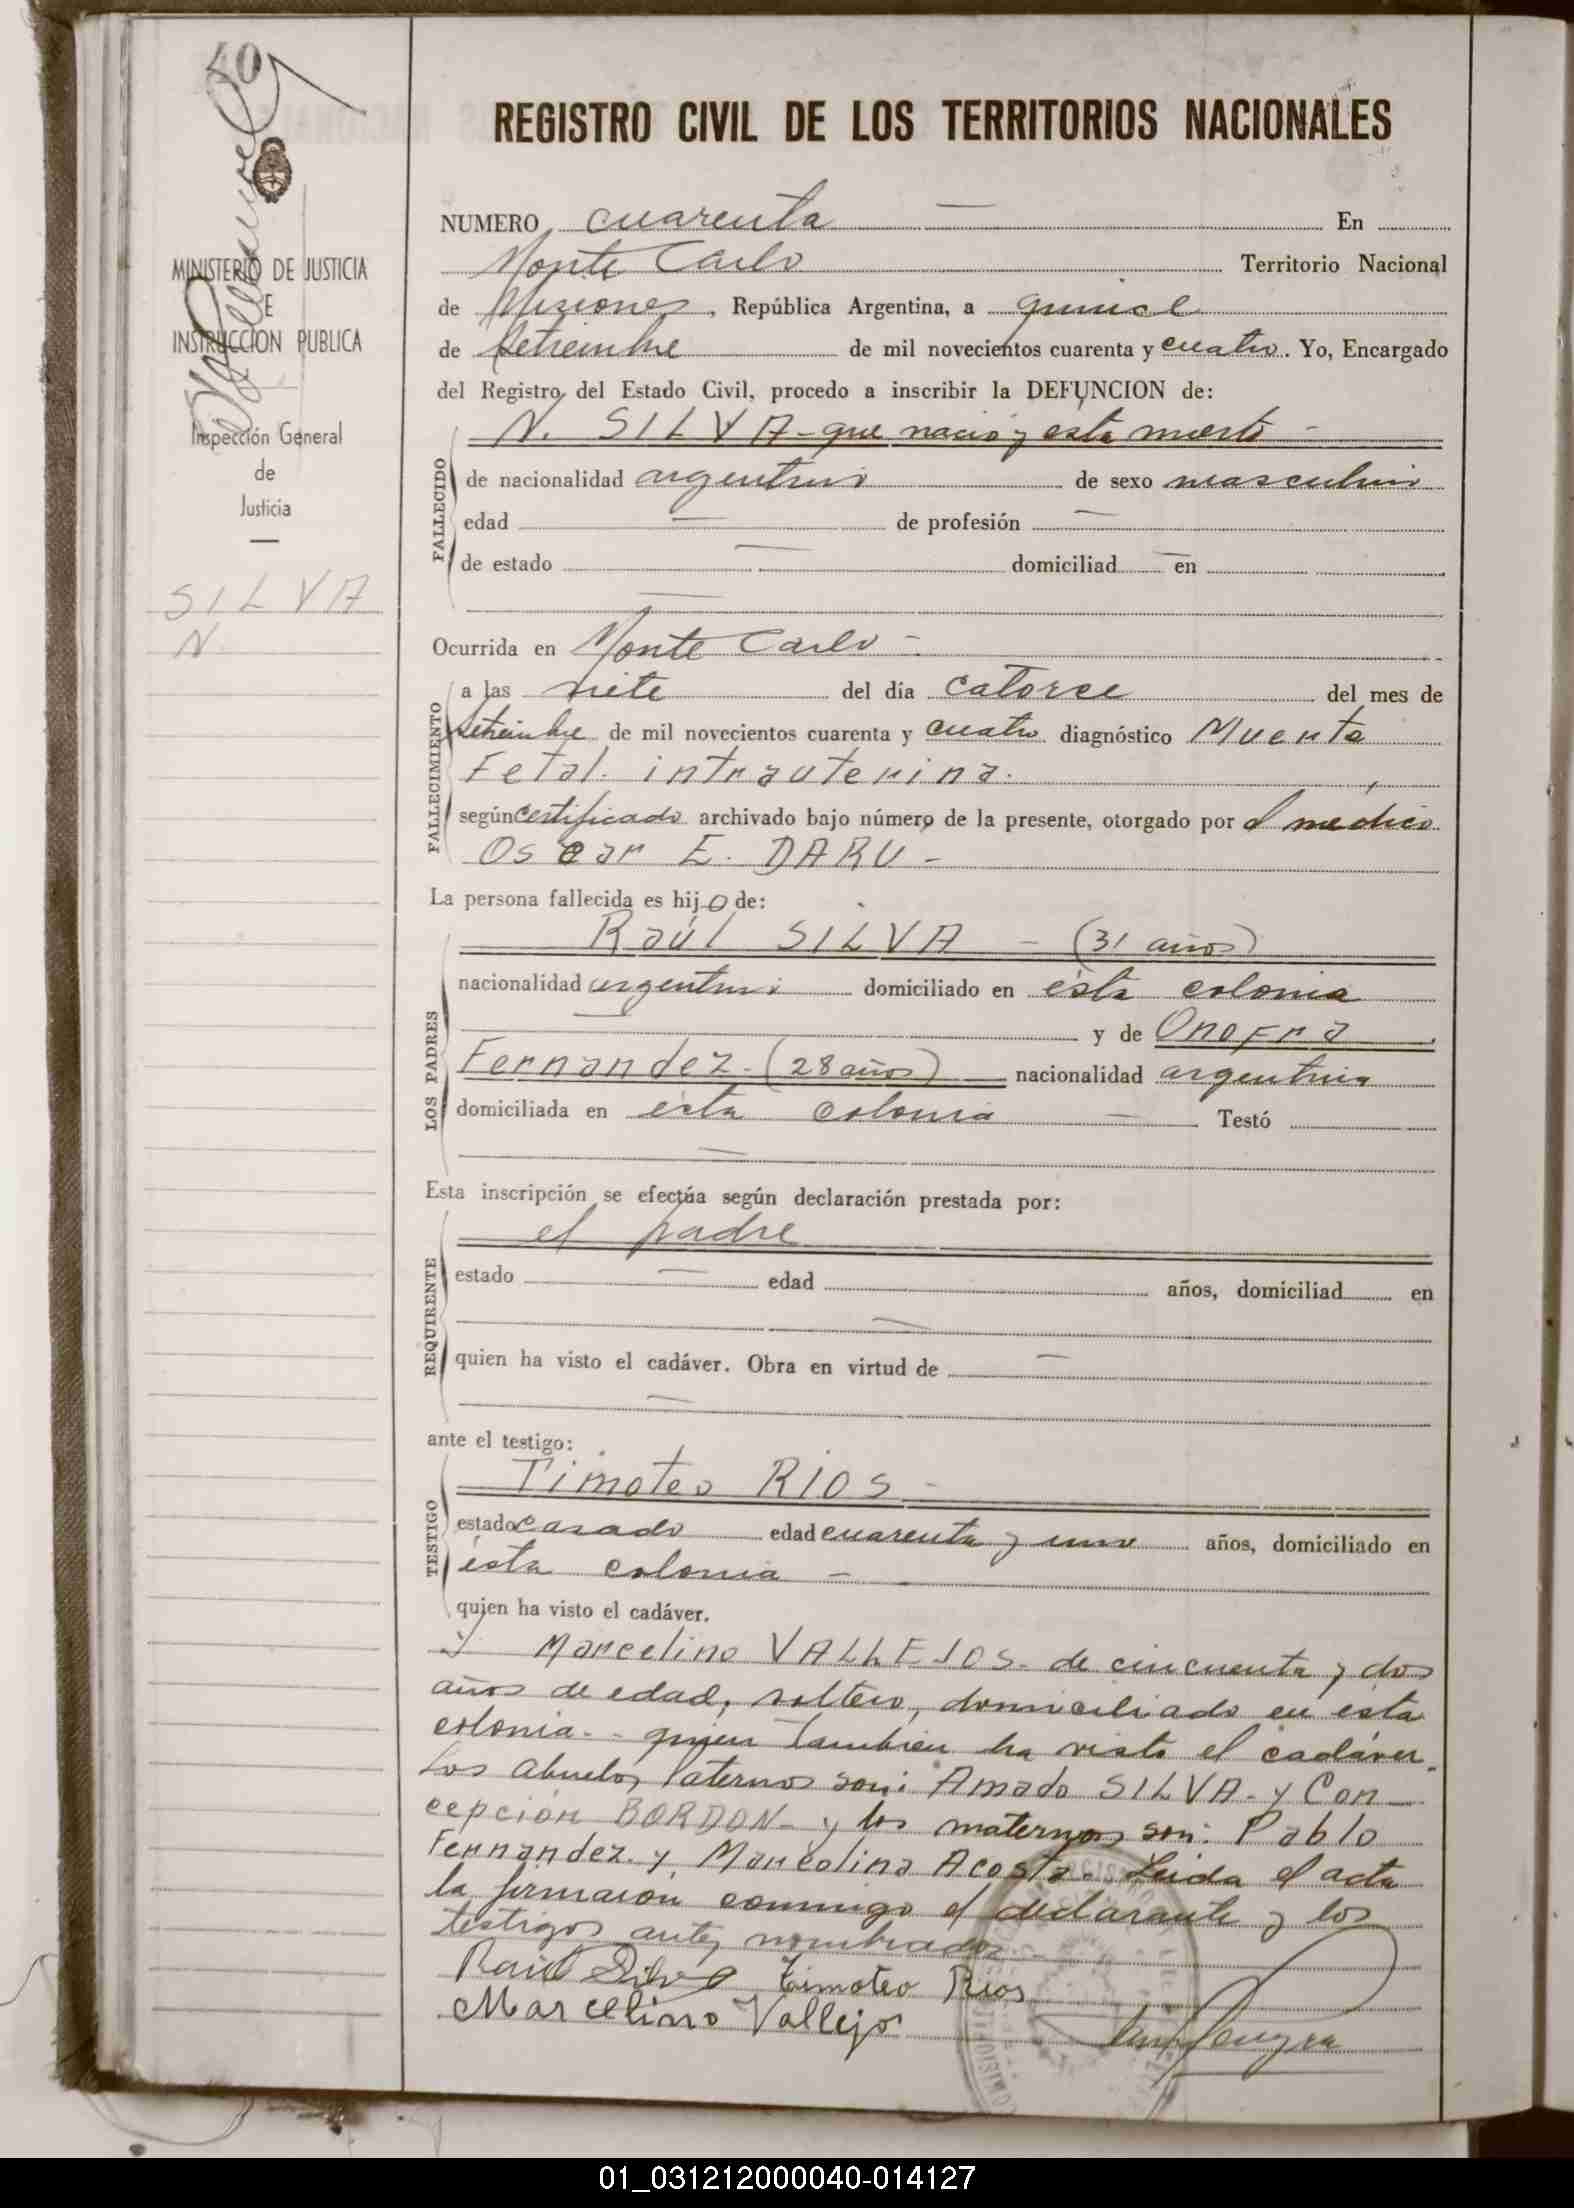 40
REGISTRO CIVIL DE LOS TERRITORIOS NACIONALES
MINISTERIO DE JUSTICIA
E
INSTRUCCION PUBLICA
Inspección General
de
Justicia
SILVA
N.
NUMERO cuarenta — En
Monte Carlo Territorio Nacional
de Misiones, República Argentina, a quince
de setiembre de mil novecientos cuarenta y cuatro. Yo, Encargado
del Registro del Estado Civil, procedo a inscribir la DEFUNCION de:
N. SILVA - que nació y esta muerto -
FALLECIDO
de nacionalidad argentino de sexo masculino
edad — de profesión —
de estado — domiciliad — en
—
Ocurrida en Monte Carlo -
FALLECIMIENTO
a las siete del día catorce del mes de
setiembre de mil novecientos cuarenta y cuatro diagnóstico Muerte
Fetal. intrauterina.
según certificado archivado bajo número de la presente, otorgado por el médico
Oscar E. DARU -
La persona fallecida es hijo de:
LOS PADRES
Raúl SILVA - (31 años)
nacionalidad argentino domiciliado en ésta colonia
— y de Onofra
Fernandez - (28 años) — nacionalidad argentina
domiciliada en ésta colonia — Testó
—
Esta inscripción se efectúa según declaración prestada por:
REQUIRENTE
el padre
estado — edad años, domiciliad en
—
quien ha visto el cadáver. Obra en virtud de —
—
ante el testigo:
TESTIGO
Timoteo RIOS -
estado casado edad cuarenta y uno años, domiciliado en
ésta colonia -
quien ha visto el cadáver.
y Marcelino VALLEJOS - de cincuenta y dos
años de edad, soltero, domiciliado en ésta
colonia - quien también ha visto el cadáver.
Los abuelos Paternos son: Amado SILVA - y Con-
cepción BORDON - y los maternos son: Pablo
Fernandez y Marcolina Acosta. Leida el acta
la firmaron conmigo el declarante y los
testigos antes nombrados -
Raúl Silva Timoteo Rios
Marcelino Vallejo
01_031212000040-014127